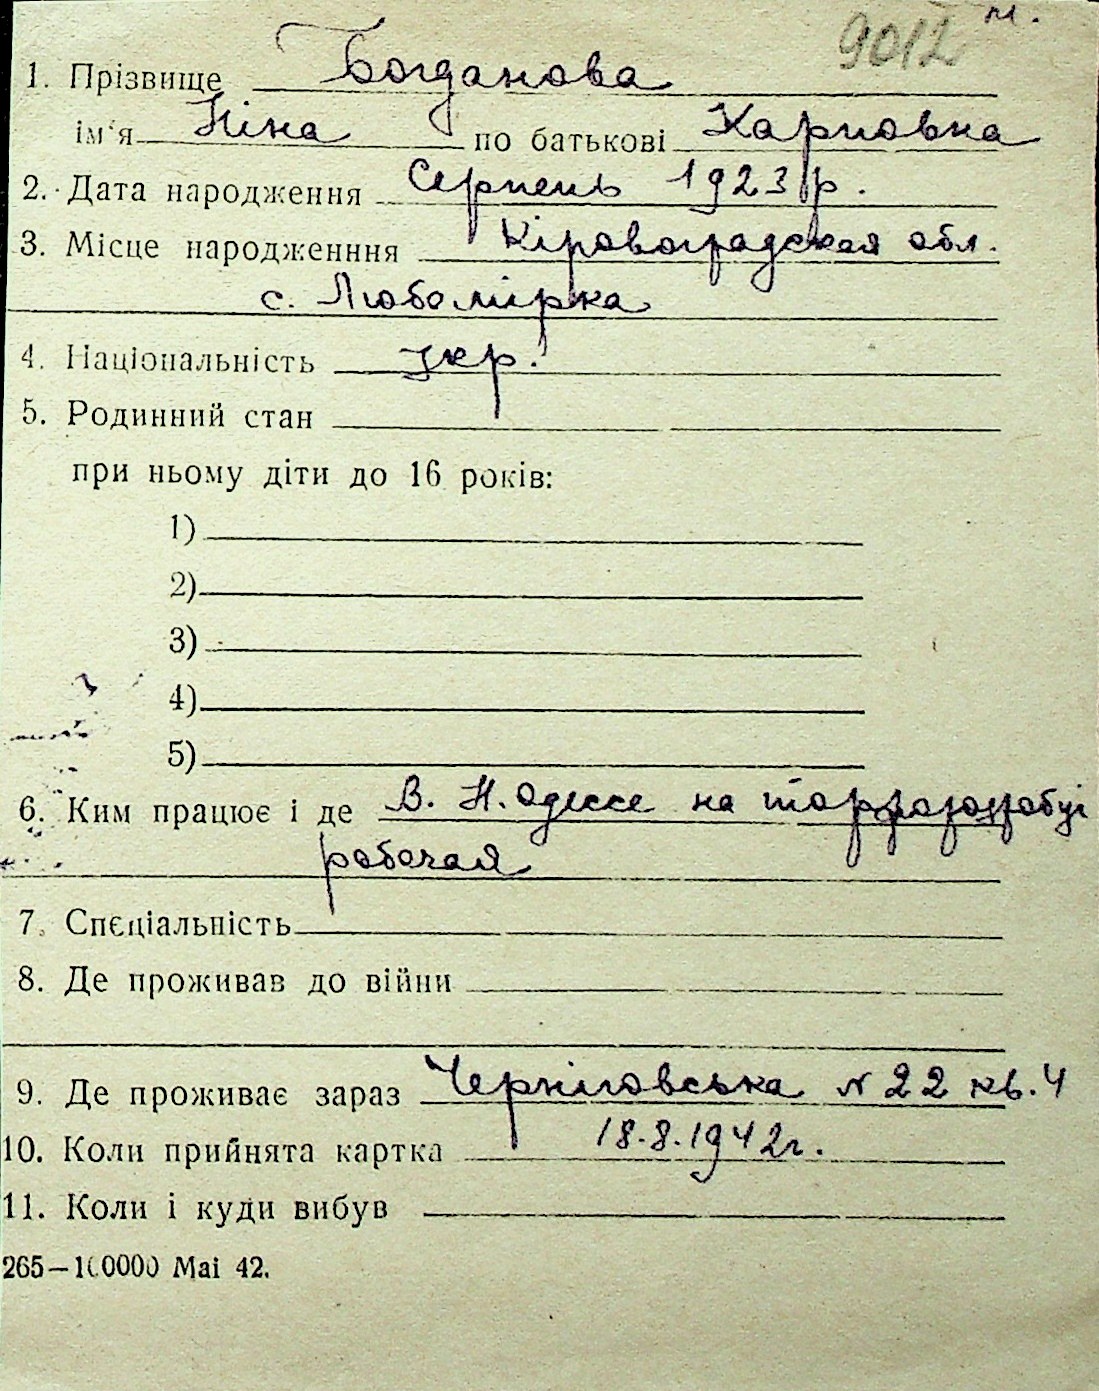 9012 м.
1. Прізвище Богданова
ім'я Ніна по батькові Карповна
2. Дата народження Серпень 1923 р.
3. Місце народженння Кіровоградская обл.
с. Любомірка
4. Національність укр.
5. Родинний стан
при ньому діти до 16 років:
1)
2)
3)
4)
5)
6. Ким працює і де В. Н. Одессе на
рабочая
7. Спеціальність
8. Де проживав до війни
9. Де проживає зараз Чернiговська № 22 кв. 4
10. Коли прийнята картка 18.8.1942г.
11. Коли і куди вибув
265—100000 Mai 42.